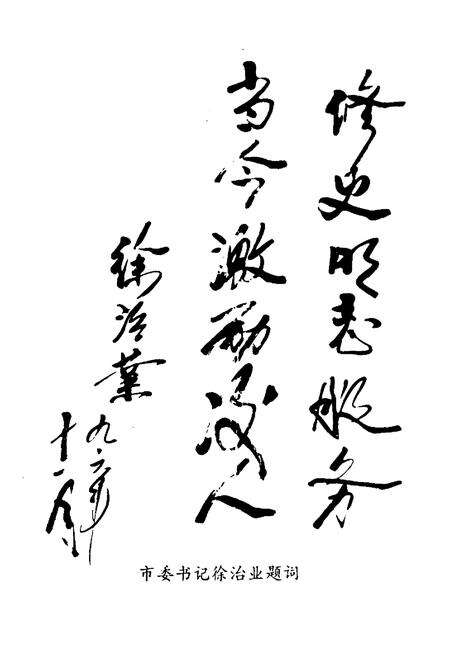 修史明志服务
当今激励后人
徐治业
九六年
十一月
市委书记徐治业题词